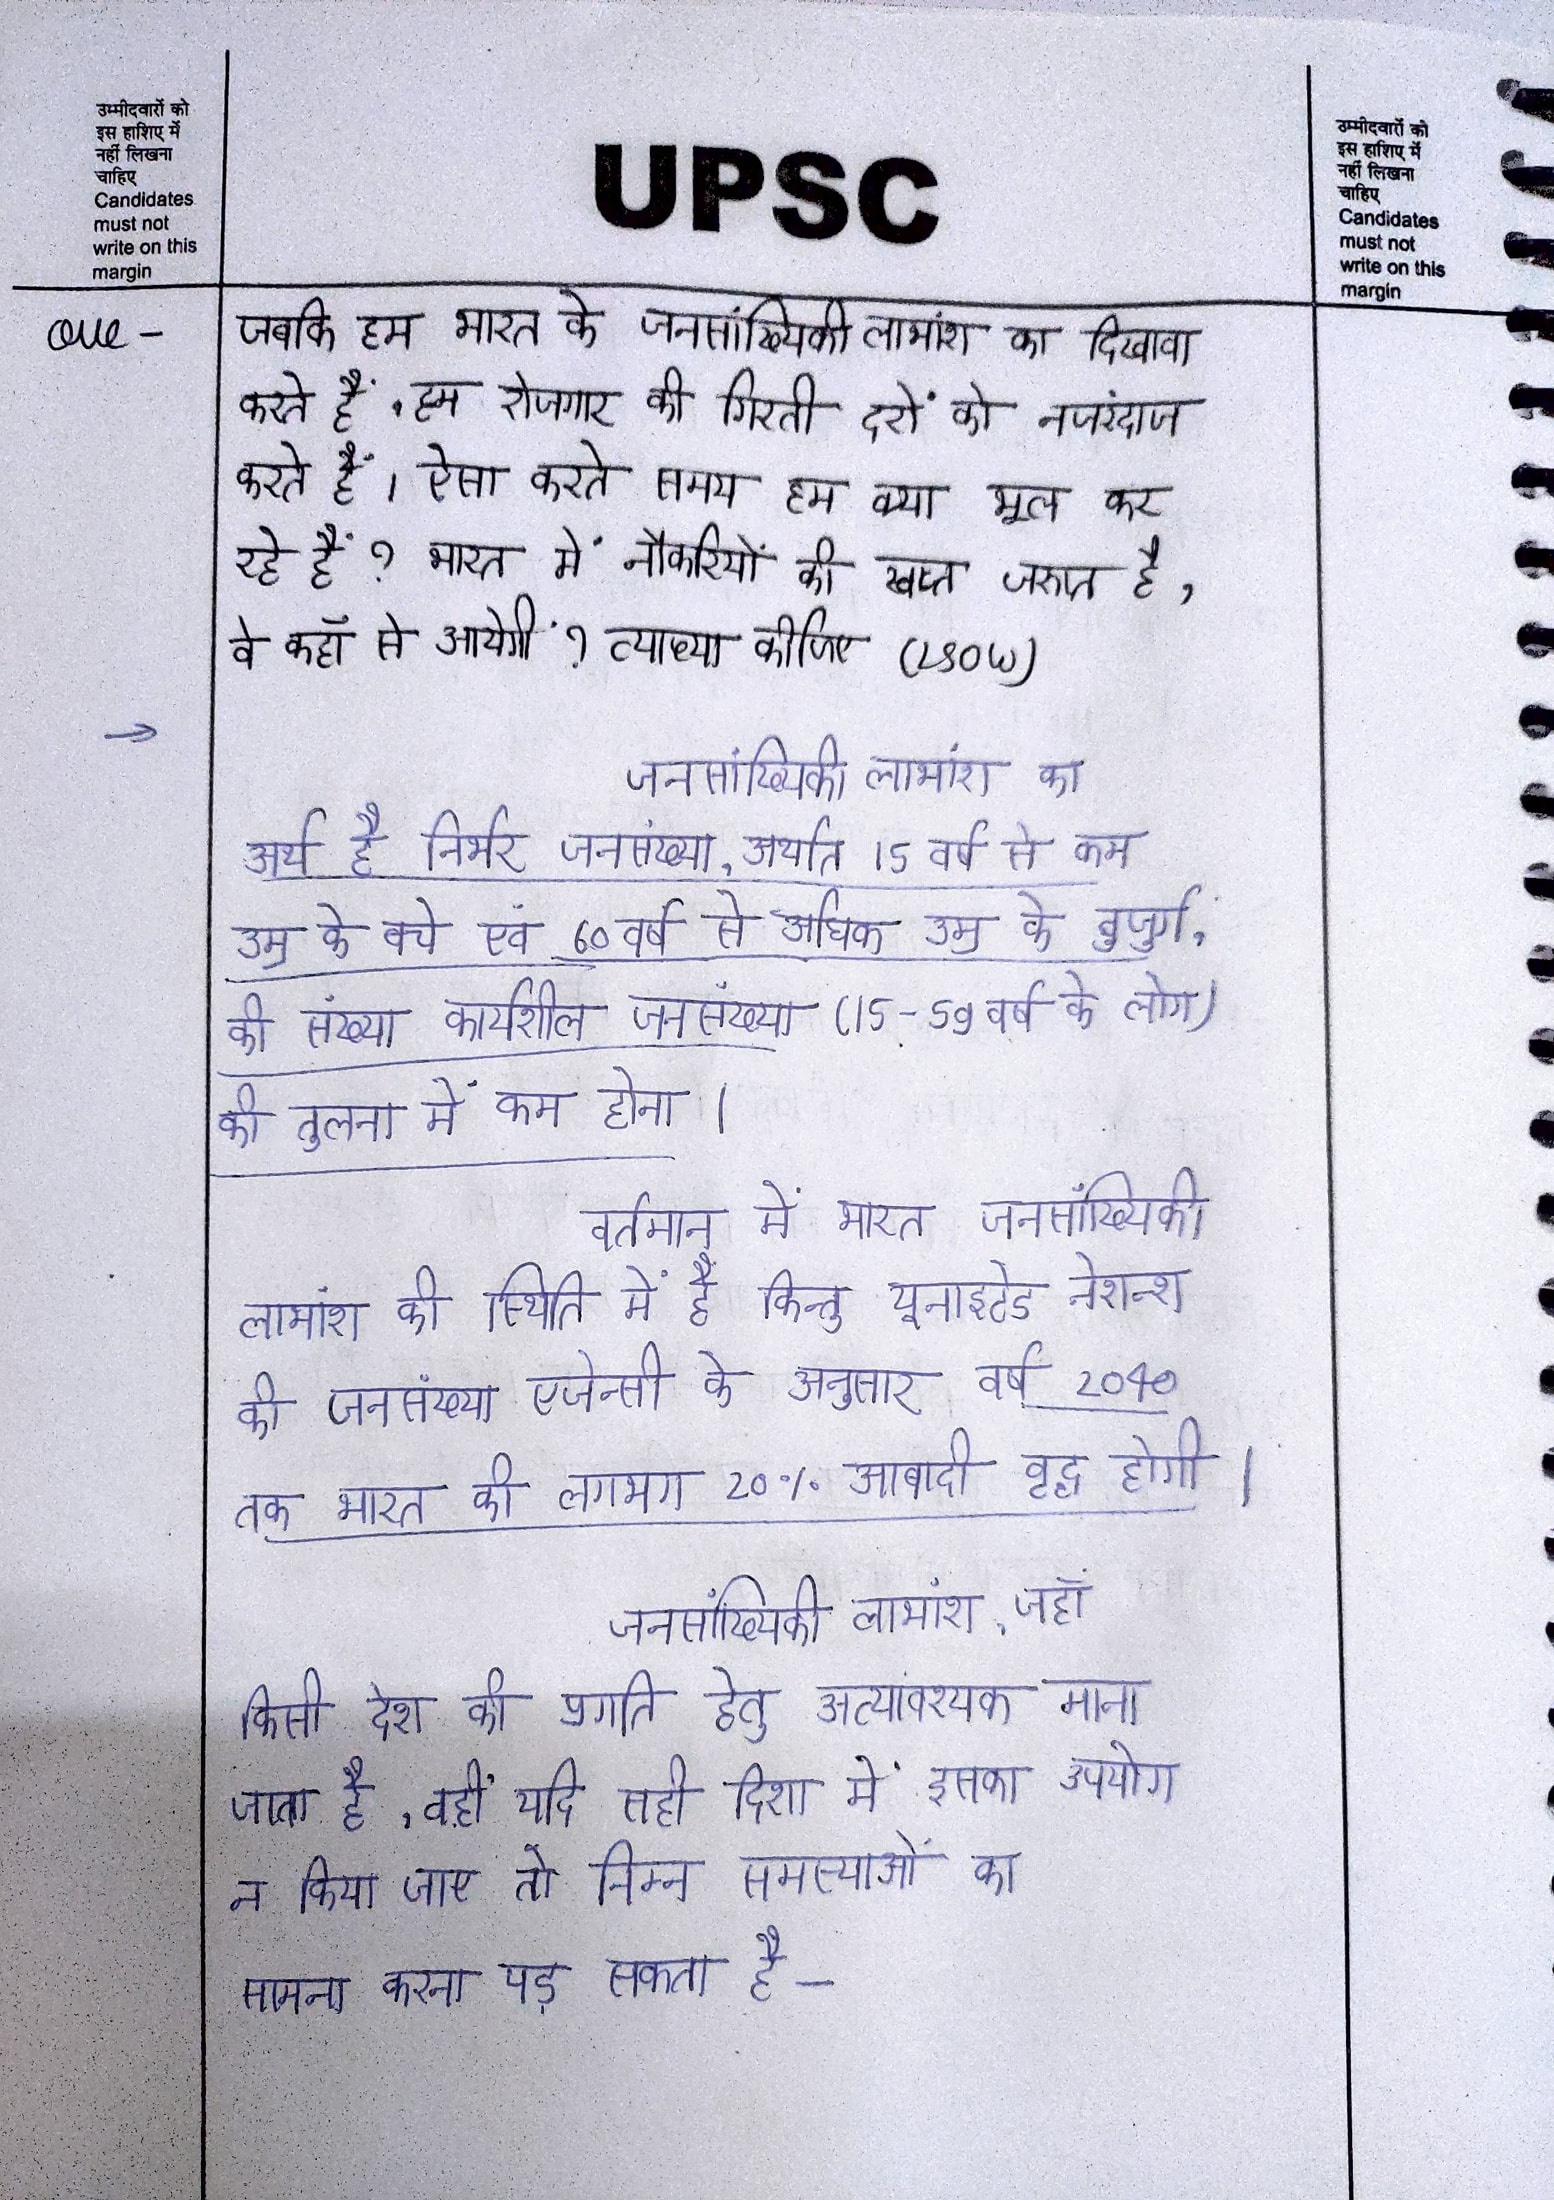 उम्मीदवारों को
इस हाशिए में
नहीं लिखना
चाहिए
Candidates
must not
write on this
margin
UPSC
उम्मीदवारों को
इस हाशिए में
नहीं लिखना
चाहिए
Candidates
must not
write on this
margin
Que - जबकि हम भारत के जनसांख्यिकी लाभांश का दिखावा
करते हैं, हम रोजगार की गिरती दरों को नजरंदाज
करते हैं। ऐसा करते समय हम क्या भूल कर
रहे हैं? भारत में नौकरियों की खप्त जरुरत है,
वे कहाँ से आयेगीं? व्याख्या कीजिए (250W)
→
जनसांख्यिकी लाभांश का
अर्थ है निर्भर जनसंख्या, अर्थात 15 वर्ष से कम
उम्र के बचे एवं 60 वर्ष से अधिक उम्र के बुजुर्ग,
की संख्या कार्यशील जनसंख्या (15-59 वर्ष के लोग)
की तुलना में कम होना।
वर्तमान में भारत जनसांख्यिकी
लाभांश की स्थिति में है किन्तु यूनाइटेड नेशन्श
की जनसंख्या एजेन्सी के अनुसार वर्ष 2040
तक भारत की लगभग 20% आबादी वृद्ध होगी।
जनसांख्यिकी लाभांश, जहाँ
किसी देश की प्रगति हेतु अत्यावश्यक माना
जाता है, वहीं यदि सही दिशा में इसका उपयोग
न किया जाए तो निम्न समस्याओं का
सामना करना पड़ सकता है -